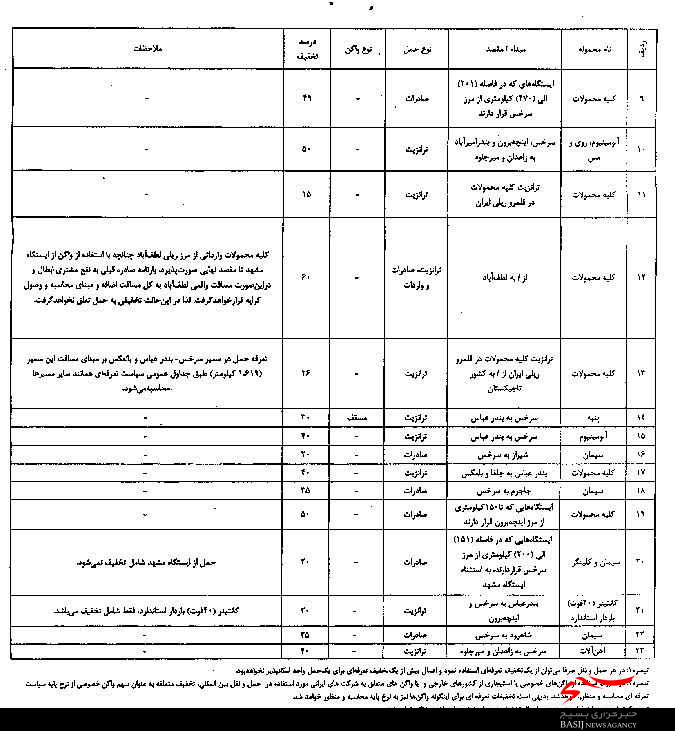 ردیف نام محموله مبداء / مقصد نوع حمل نوع واگن درصد تخفیف ملاحظات
۹ کلیه محمولات ایستگاه‌های که در فاصله (۲۰۱) الی (۴۷۰) کیلومتری از مرز سرخس قرار دارند صادرات - ۴۹ -
۱۰ آلومینیوم، روی و مس سرخس، اینچه‌برون و بندرامیرآباد به زاهدان و میرجاوه ترانزیت - ۵۰ -
۱۱ کلیه محمولات ترانزیت کلیه محمولات در قلمرو ریلی ایران ترانزیت - ۱۵ -
۱۲ کلیه محمولات از / به لطف‌آباد ترانزیت، صادرات و واردات - ۶۰
کلیه محمولات وارداتی از مرز ریلی لطف‌آباد چنانچه با استفاده از واگن از ایستگاه
مشهد تا مقصد نهایی صورت‌پذیرد، بارنامه صادره قبلی به نفع مشتری ابطال و
دراین‌صورت مسافت واقعی لطف‌آباد به کل مسافت اضافه و مبنای محاسبه و وصول
کرایه قرارخواهدگرفت. لذا در این‌حالت تخفیفی به حمل تعلق نخواهدگرفت.
۱۳ کلیه محمولات ترانزیت کلیه محمولات در قلمرو ریلی ایران از / به کشور تاجیکستان ترانزیت - ۲۶
تعرفه حمل در مسیر سرخس- بندر عباس و بالعکس بر مبنای مسافت این مسیر
(۱،۶۱۹ کیلومتر) طبق جداول عمومی سیاست تعرفه‌ای همانند سایر مسیرها
محاسبه‌می‌شود.
۱۴ پنبه سرخس به بندر عباس ترانزیت مسقف ۳۰ -
۱۵ آلومینیوم سرخس به بندر عباس ترانزیت - ۴۰ -
۱۶ سیمان شیراز به سرخس صادرات - ۲۰ -
۱۷ کلیه محمولات بندر عباس به جلفا و بالعکس ترانزیت - ۴۰ -
۱۸ سیمان جاجرم به سرخس صادرات - ۳۵ -
۱۹ کلیه محمولات ایستگاه‌هایی که تا ۱۵۰ کیلومتری از مرز اینچه‌برون قرار دارند صادرات - ۵۰ -
۲۰ سیمان و کلینکر ایستگاه‌هایی که در فاصله (۱۵۱) الی (۲۰۰) کیلومتری از مرز سرخس قراردارند، به استثناء ایستگاه مشهد صادرات - ۲۰ حمل از ایستگاه مشهد شامل تخفیف نمی‌شود.
۲۱ کانتینر (۴۰فوت) باردار استاندارد بندرعباس به سرخس و اینچه‌برون ترانزیت - ۲۰ کانتینر (۴۰فوت) باردار استاندارد، فقط شامل تخفیف می‌باشد.
۲۲ سیمان شاهرود به سرخس صادرات - ۳۵ -
۲۳ آهن‌آلات سرخس به زاهدان و میرجاوه ترانزیت - ۴۰ -
تبصره۱: در هر حمل و نقل صرفا می‌توان از یک‌تخفیف تعرفه‌ای استفاده نمود و اعمال بیش از یک‌تخفیف تعرفه‌ای برای یک‌حمل واحد امکانپذیر نخواهدبود.
واگن‌های خصوصی یا استیجاری از کشورهای خارجی و یا واگن های متعلق به شرکت های ایرانی مورد استفاده در حمل و نقل بین المللی، تخفیف متعلقه به عنوان سهم واگن خصوصی از نرخ پایه سیاست
تعرفه ای محاسبه و منظور بدیهی است تخفیفات تعرفه ای برای اینگونه واگن‌ها نیز به نرخ پایه محاسبه و منظور خواهد شد.
خبرگزاری بسیج
BASIJ NEWS AGENCY